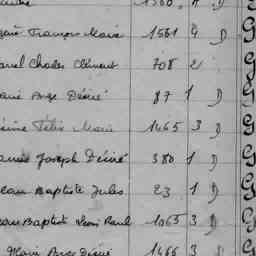 François Marie 1561 4 D G
Charles Clément 708 2 G
Ange Désiré 87 1 D G
Félix Marie 1465 3 D G
Joseph Désiré 380 1 D G
Jean Baptiste Jules 23 1 D G
Jean Baptiste Henri Paul 1065 3 D G
Marie Ange Désiré 1466 3 D G